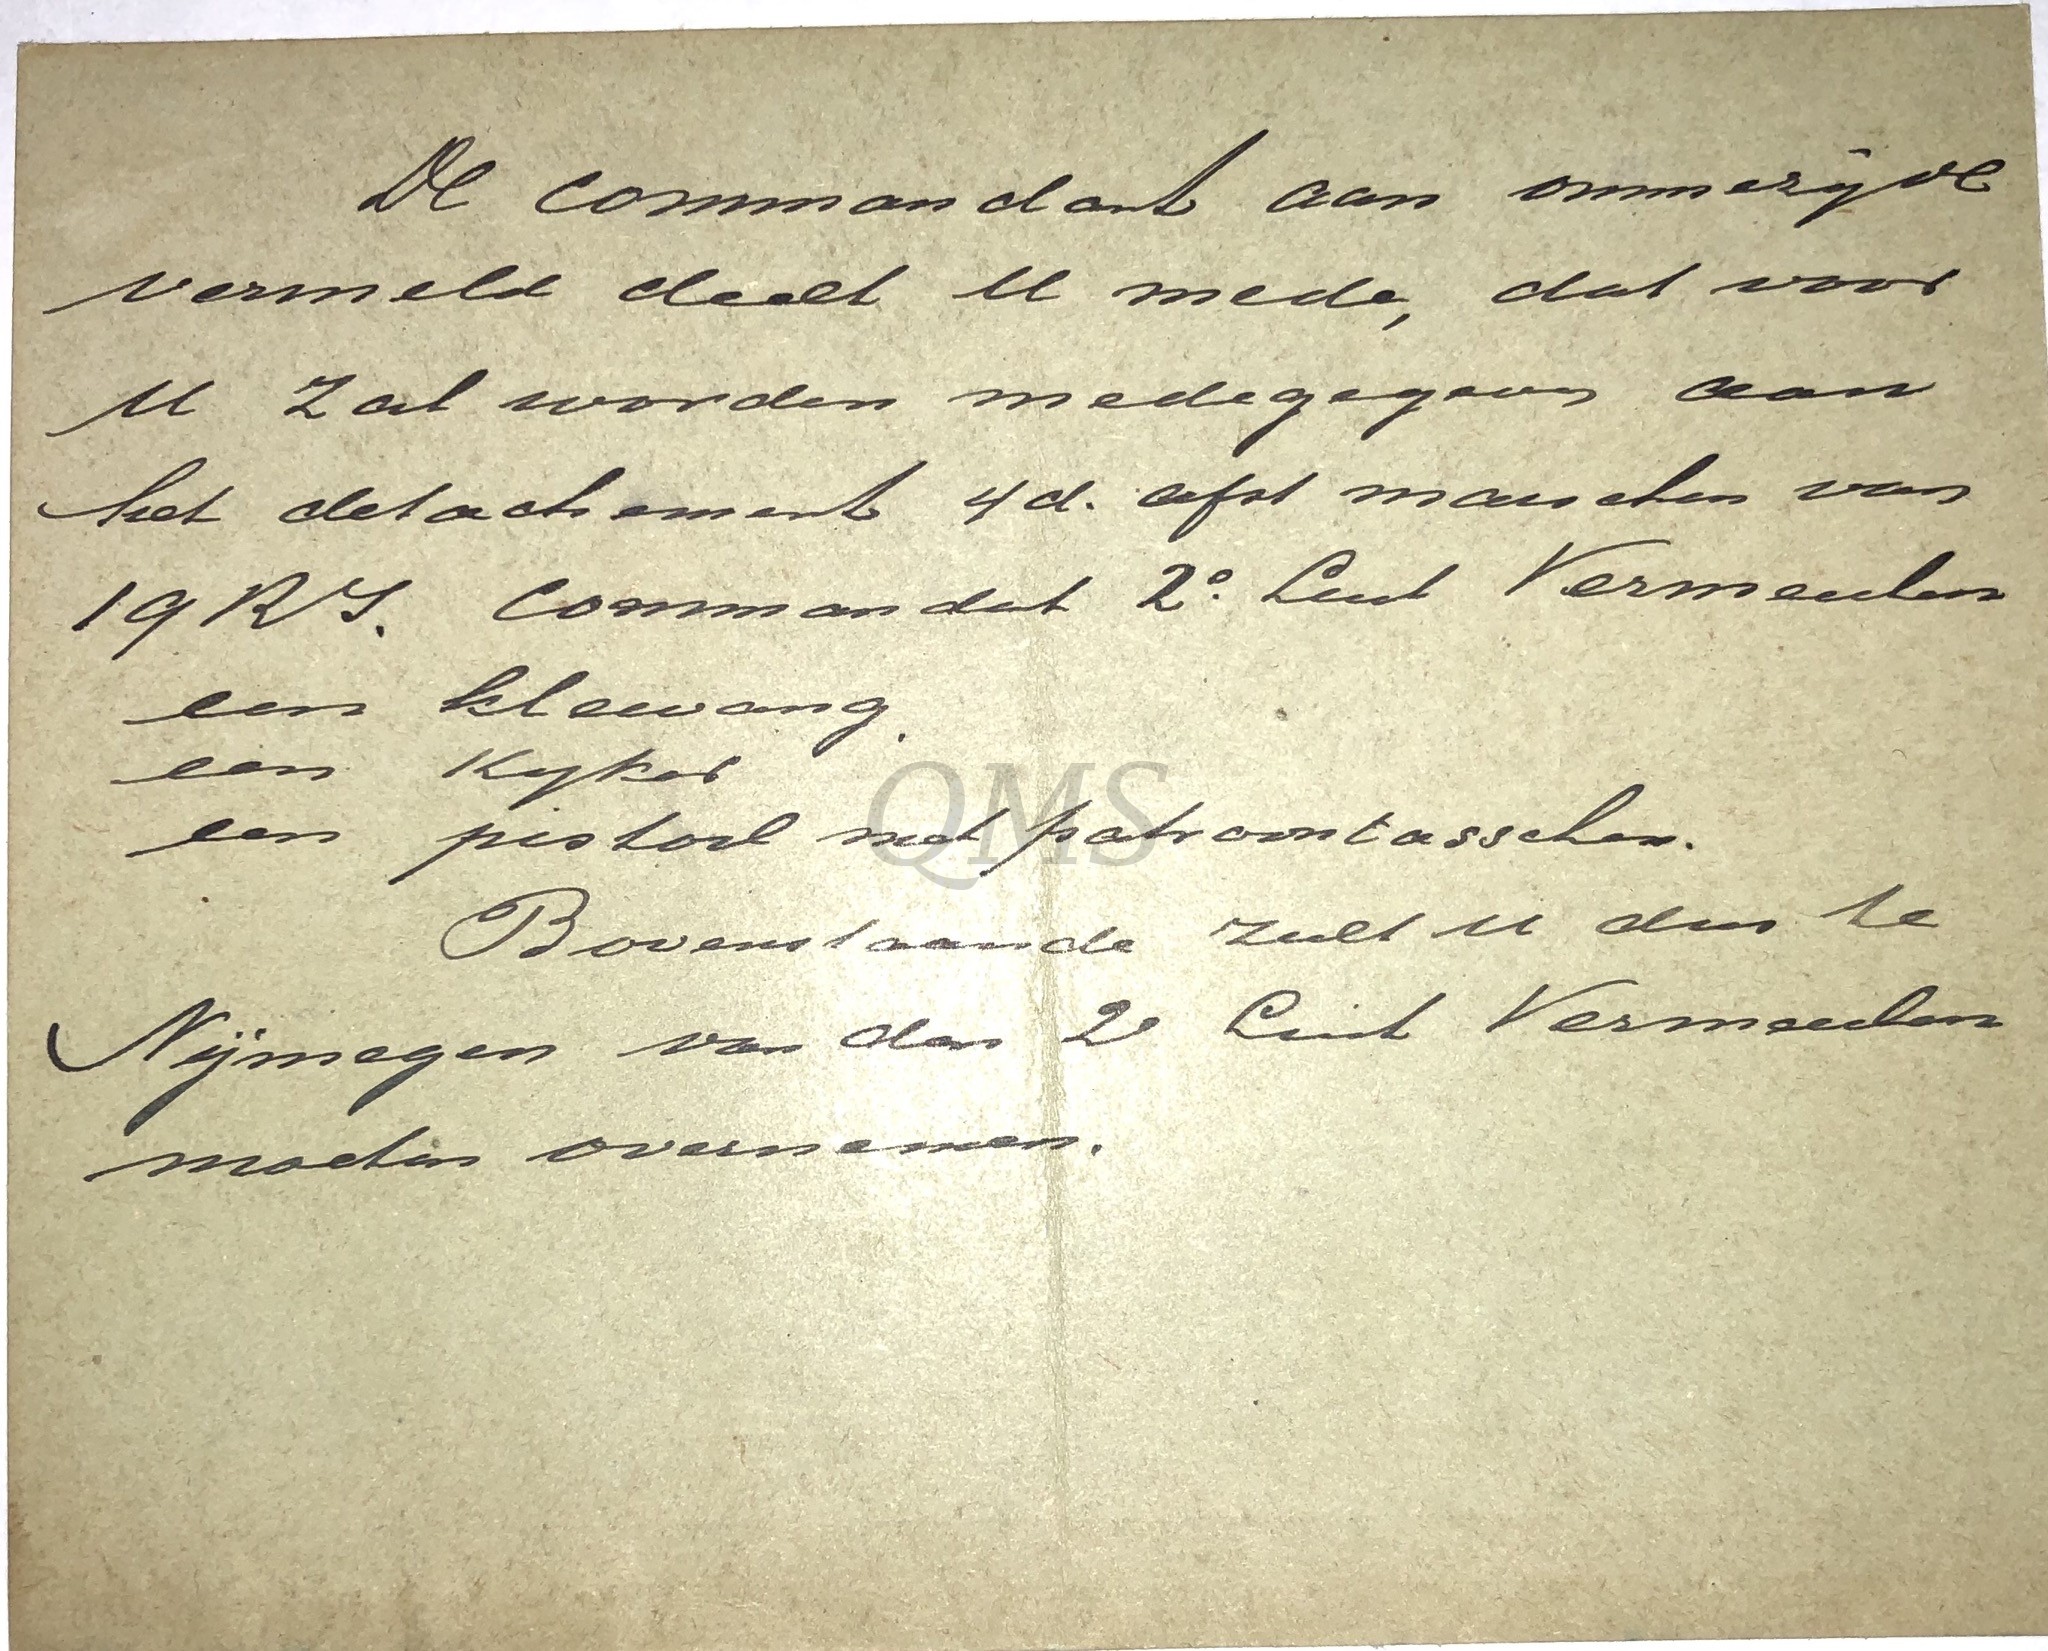 De commandant aan ommezijde
vermeld deelt U mede, dat voor
U zal worden medegegeven aan
het detachement 4 d. afst manschen van
19 R.I. commandat 2e Luit Vermeulen
een klewang.
een kyker
een pistool met patroontasschen.
QMS
Bovenstaande zult U dus te
Nijmegen van den 2e Luit Vermeulen
moeten overnemen.